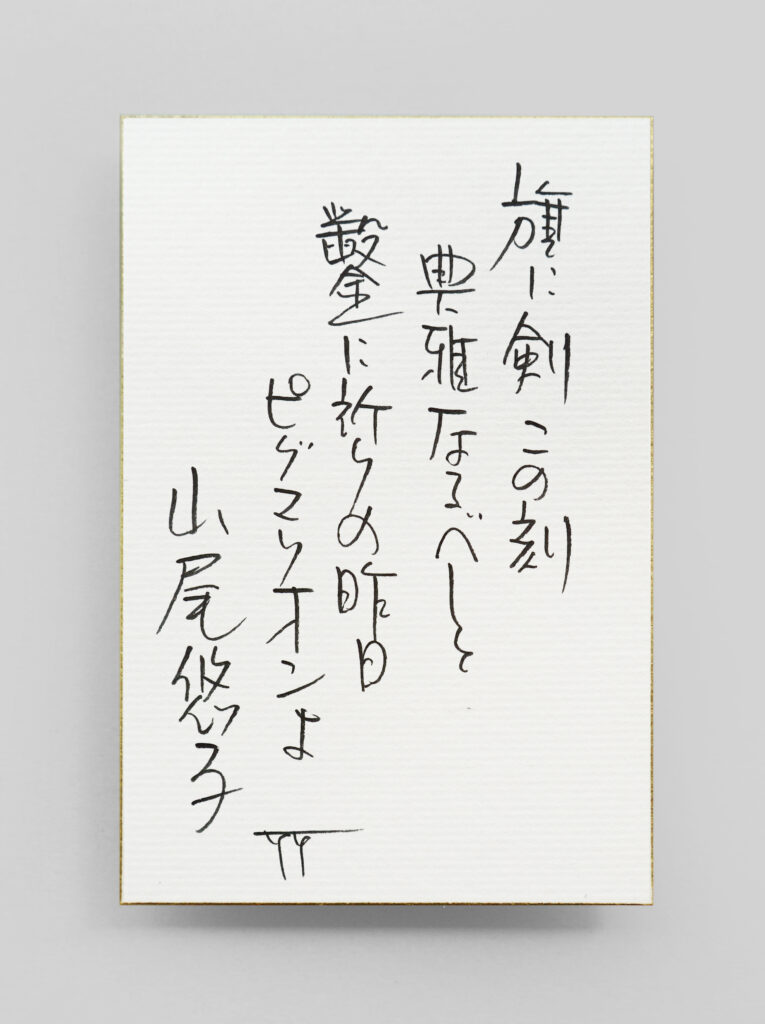 旗に剣この刻
典雅なるべしと
鑿に祈らの昨日
ピグマリオンよ
山尾悠子